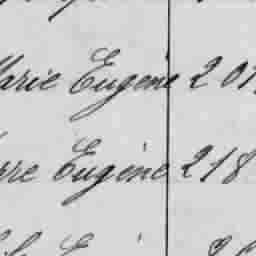 Marie Eugène 201
Pierre Eugène 218